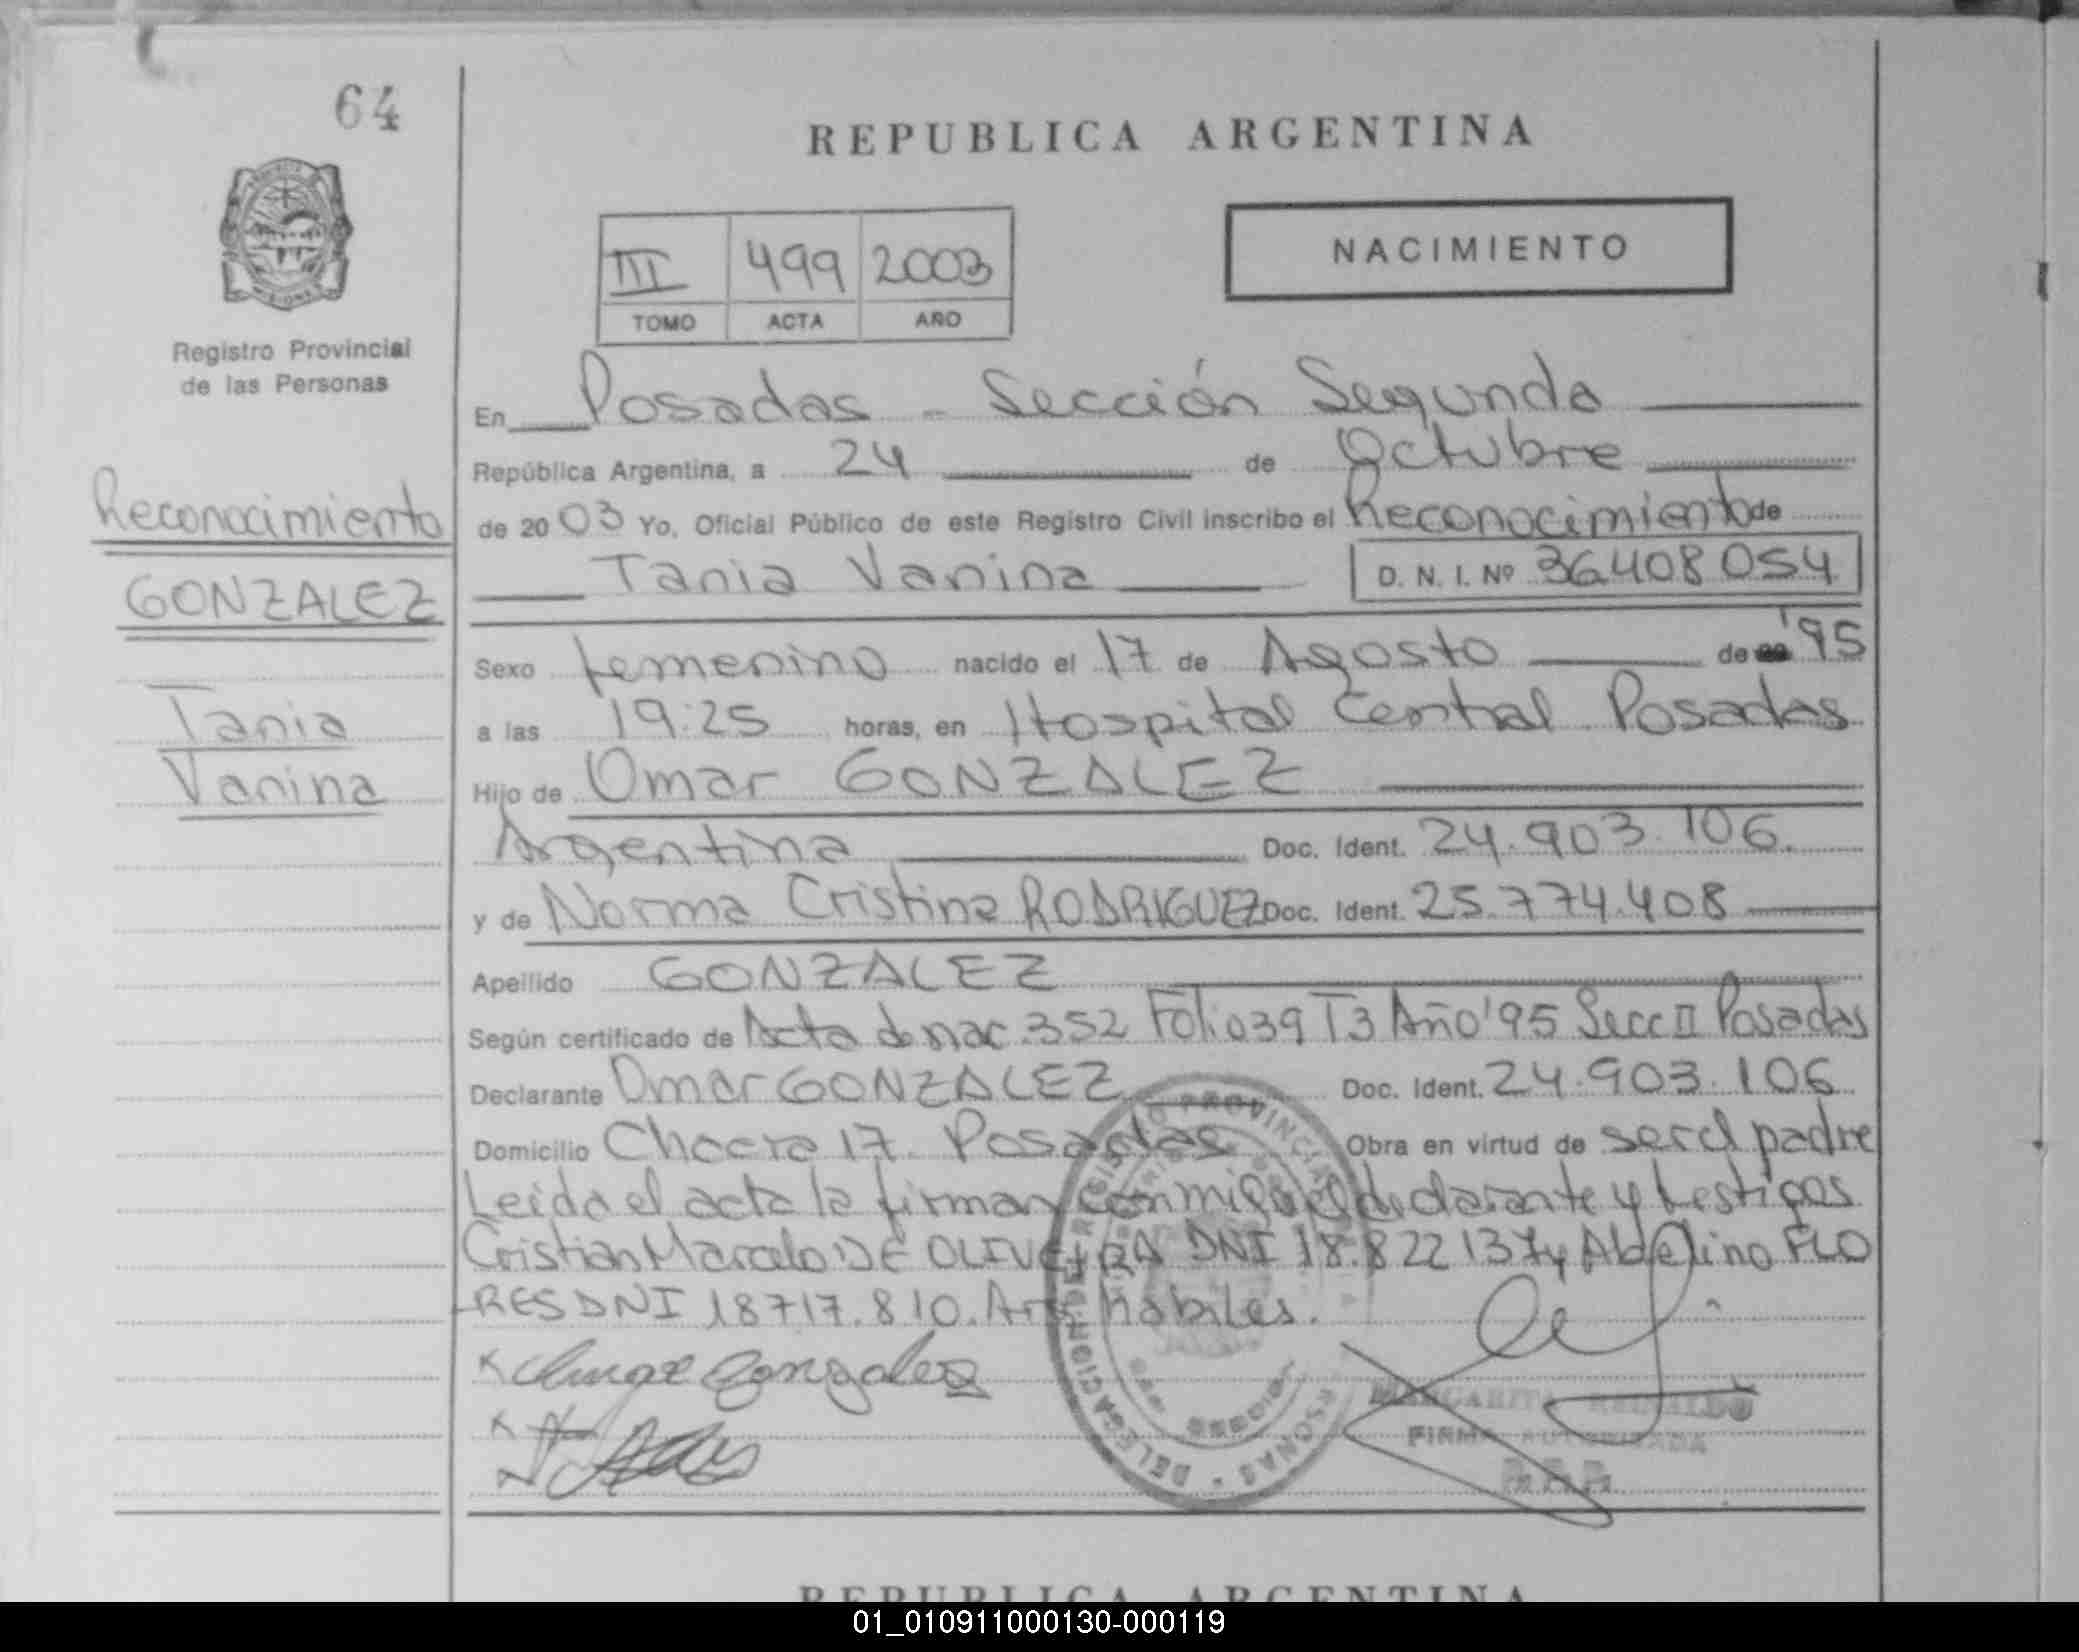 64
REPUBLICA ARGENTINA
NACIMIENTO
III 499 2003
TOMO ACTA AÑO
Registro Provincial
de las Personas
Reconocimiento
GONZALEZ
Tania
Vanina
En Posadas - Sección Segunda
República Argentina, a 24 de Octubre
de 2003 Yo, Oficial Público de este Registro Civil inscribo el Reconocimiento de
Tania Vanina D. N. I. Nº 36408054
Sexo femenino nacido el 17 de Agosto de '95
a las 19:25 horas, en Hospital Central Posadas
Hijo de Omar GONZALEZ
Argentina Doc. Ident. 24.903.106.
y de Norma Cristina RODRIGUEZ Doc. Ident. 25.774.408
Apellido GONZALEZ
Según certificado de Acta de nac. 352 Folio 39 T3 Año '95 Secc II Posadas
Declarante Omar GONZALEZ Doc. Ident. 24.903.106
Domicilio Chacra 17. Posadas Obra en virtud de ser el padre
Leida el acta la firman conmigo el declarante y testigos
Cristian Marcelo DE OLIVEIRA DNI 18.822137 y Abelino FLO
RES DNI 18717.810. Arg. habiles.
Gonzalez
DELEGACION DEL REGISTRO PROVINCIAL PERSONAS
MISIONES
MARGARITA REINALDO
FIRMA AUTORIZADA
R.P.P.
REPUBLICA ARGENTINA
01_010911000130-000119